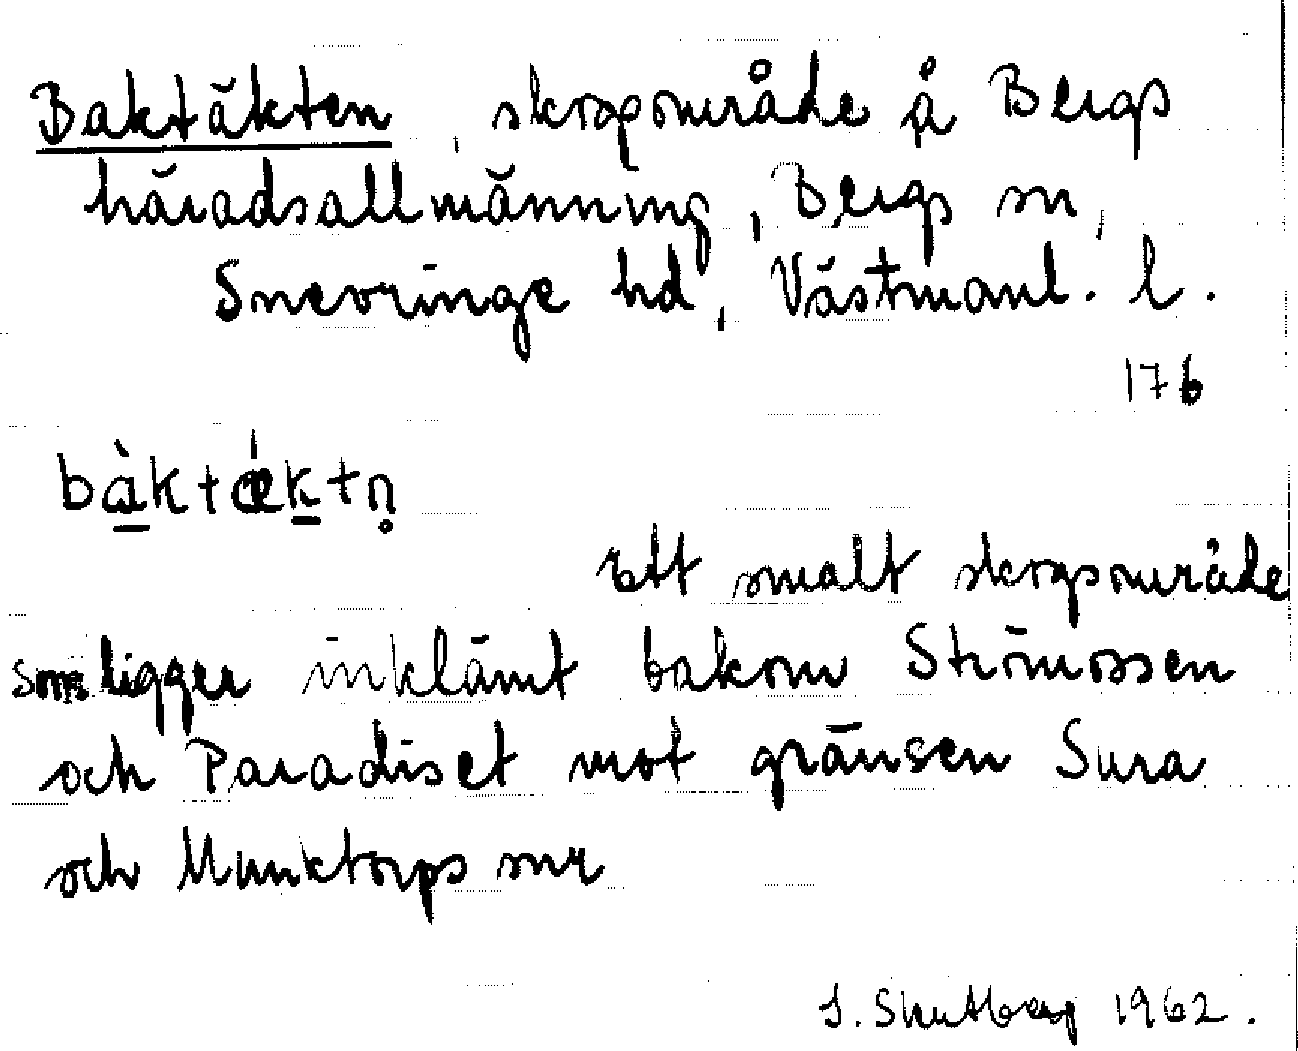 Baktäkten, skogsområde å Bergs
häradsallmänning, Bergs sn,
Snevringe hd, Västmanl. l.
176
bàktǽktn̥
Ett smalt skogsområde
som ligger inklämt bakom Strömossen
och Paradiset mot gränsen Sura
och Munktorps snr
S. Skutberg 1962.